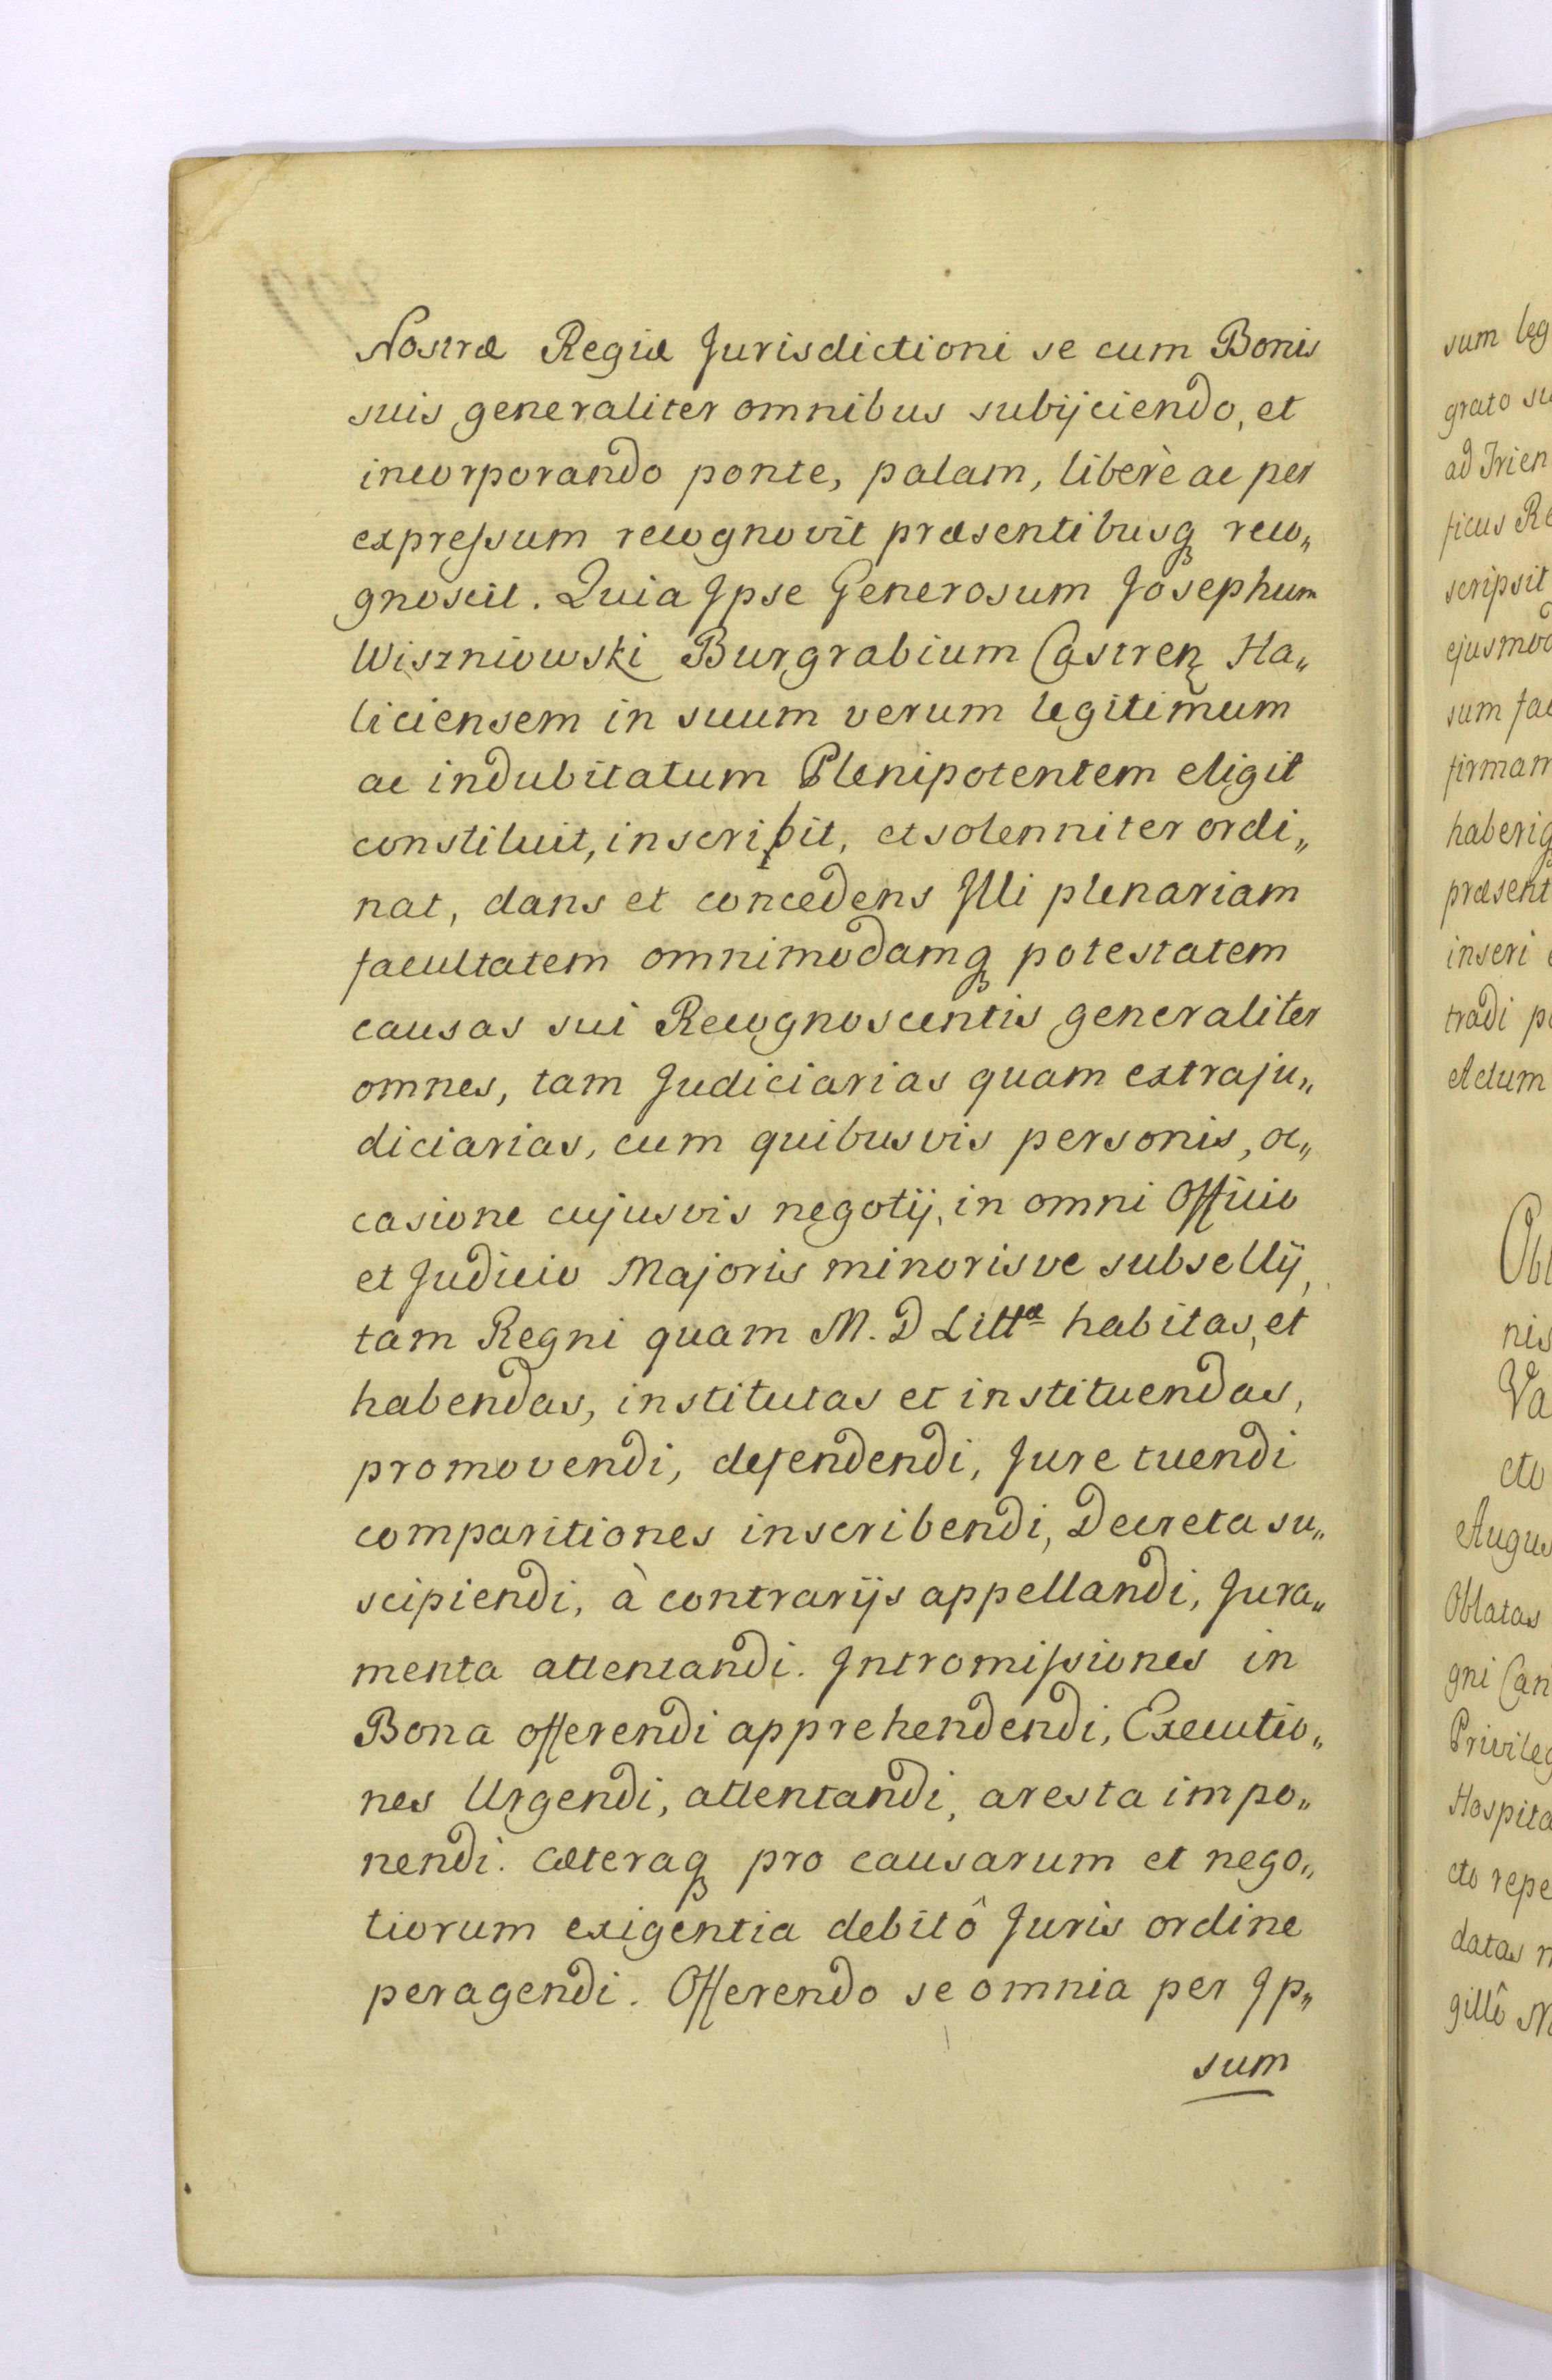 Nostræ Regiæ Jurisdictioni se cum Bonis
suis generaliter omnibus subijciendo, et
incorporando ponte, palam, liberè ac per
expressum recognovit præsentibusq reco„
gnoscit. Quia Ipse Generosum Josephum
Wiszniowski Burgrabium Castren Ha„
liciensem in suum verum legitimum
ac indubitatum Plenipotentem eligit
constituit, inscribit, et solenniter ordi„
nat, dans et concedens Illi plenariam
facultatem omnimodamq potestatem
causas sui Recognoscentis generaliter
omnes, tam Judiciarias quam extraju„
diciarias, cum quibusvis personis, oc„
casione cujusvis negotij, in omni Officio
et Judicio Majoris minorisve subsellij,
tam Regni quam M. D Littæ habitas, et
habendas, institutas et instituendas,
promovendi, defendendi, Jure tuendi
comparitiones inscribendi, Decreta su„
scipiendi, à contrarijs appellandi, Jura„
menta attentandi. Intromissiones in
Bona offerendi apprehendendi, Executio„
nes Urgendi, attentandi, aresta impo„
nendi. Cæteraq pro causarum et nego„
tiorum exigentia debitô Juris ordine
peragendi. Offerendo se omnia per Ip„
sum
sum leg
grato su
ad Trien
ficus Re
scripsit
ejusmod
sum fac
firmam
haberiq
præsent
inseri
tradi p
Actum
Obl
nis
Va
cto
Augus
Oblatas
gni Can
Privileg
Hospita
cto repe
datas n
gillô M